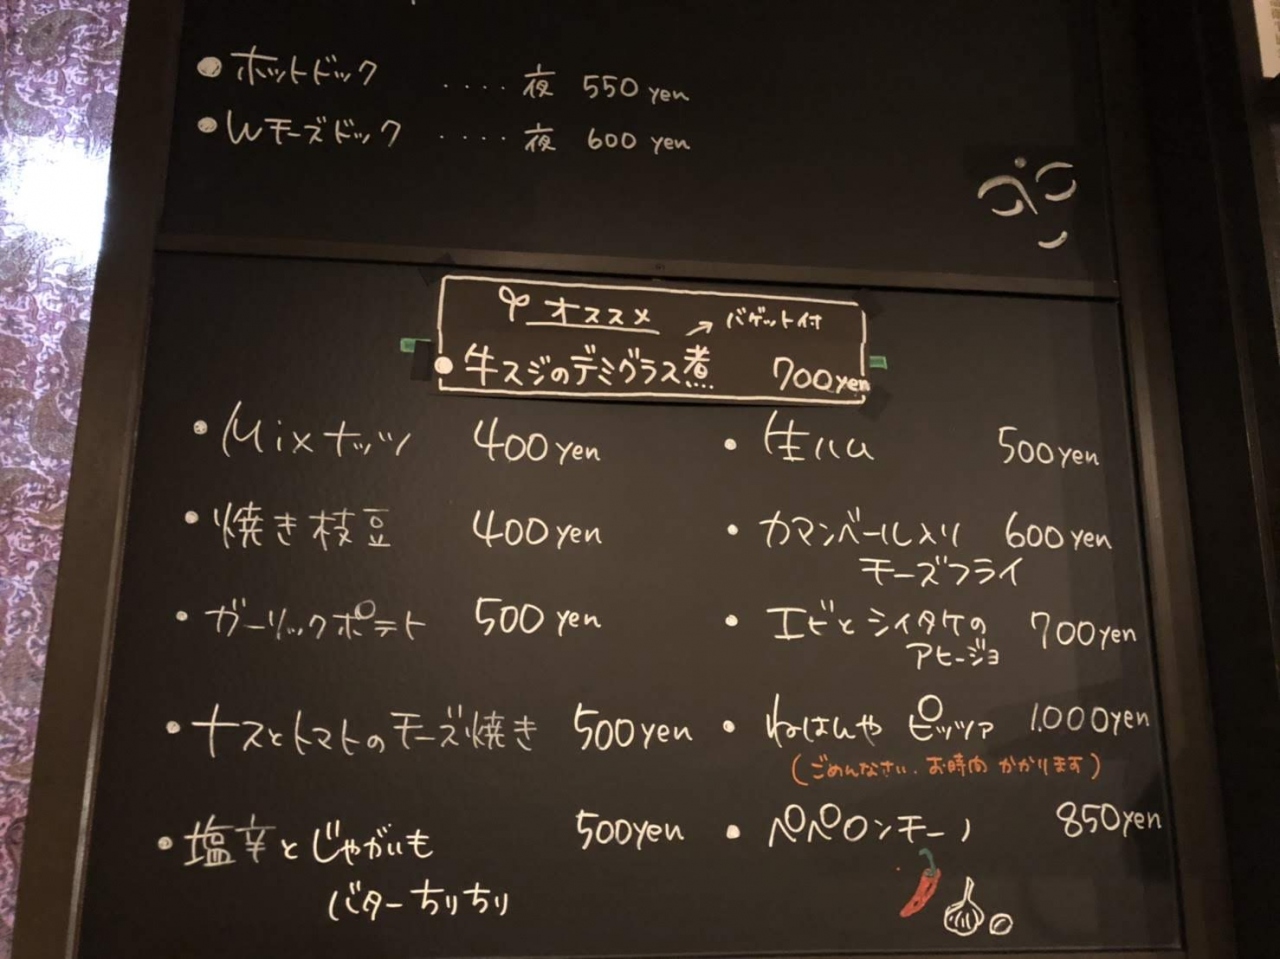 ● ホットドック ････ 夜 550 yen
● Wチーズドック ････ 夜 600 yen
オススメ → バゲット付
● 牛スジのデミグラス煮 700yen
● Mixナッツ 400yen
● 焼き枝豆 400yen
● ガーリックポテト 500yen
● ナスとトマトのチーズ焼き 500yen
● 塩辛とじゃがいも 500yen
バターちりちり
● 生ハム 500yen
● カマンベール入り 600yen
チーズフライ
● エビとシイタケの 700yen
アヒージョ
● ねはんや ピッツァ 1.000yen
(ごめんなさい、お時間かかります)
● ペペロンチーノ 850yen